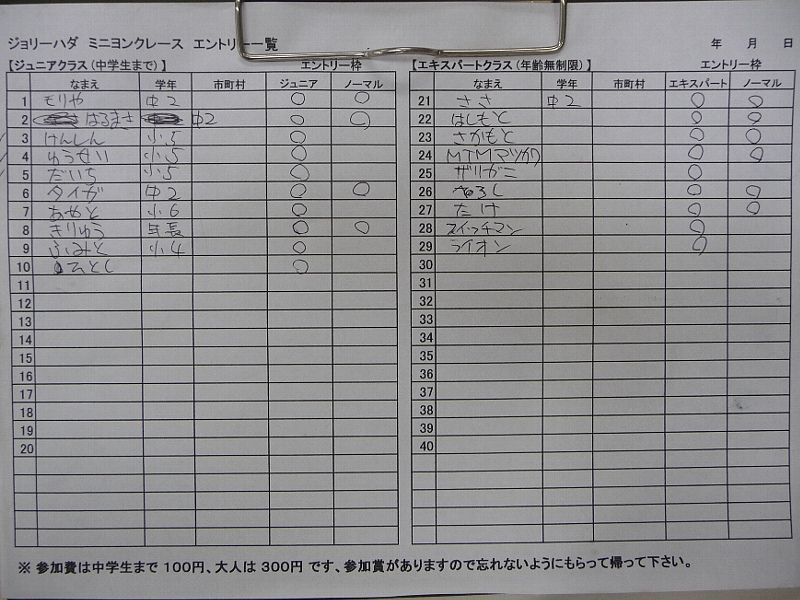 ジョリーハダ ミニヨンクレース エントリー一覧
年 月 日
【ジュニアクラス(中学生まで)】 エントリー枠
なまえ 学年 市町村 ジュニア ノーマル
1 モリや 中2 ○ ○
2 はるまさ 中2 ○ ○
3 けんしん 小5 ○
4 ゆうせい 小5 ○
5 だいち 小5 ○
6 タイガ 中2 ○ ○
7 あやと 小6 ○
8 きりゅう 年長 ○ ○
9 ふみと 小4 ○
10 ひとし ○
11
12
13
14
15
16
17
18
19
20
【エキスパートクラス(年齢無制限)】 エントリー枠
なまえ 学年 市町村 エキスパート ノーマル
21 ささ 中2 ○ ○
22 はしもと ○ ○
23 さかもと ○ ○
24 MTMマツカワ ○ ○
25 ザリガニ ○
26 ○ ○
27 たけ ○ ○
28 スイッチマン ○
29 ライオン ○
30
31
32
33
34
35
36
37
38
39
40
※ 参加費は中学生まで 100円、大人は 300円 です、参加賞がありますので忘れないようにもらって帰って下さい。